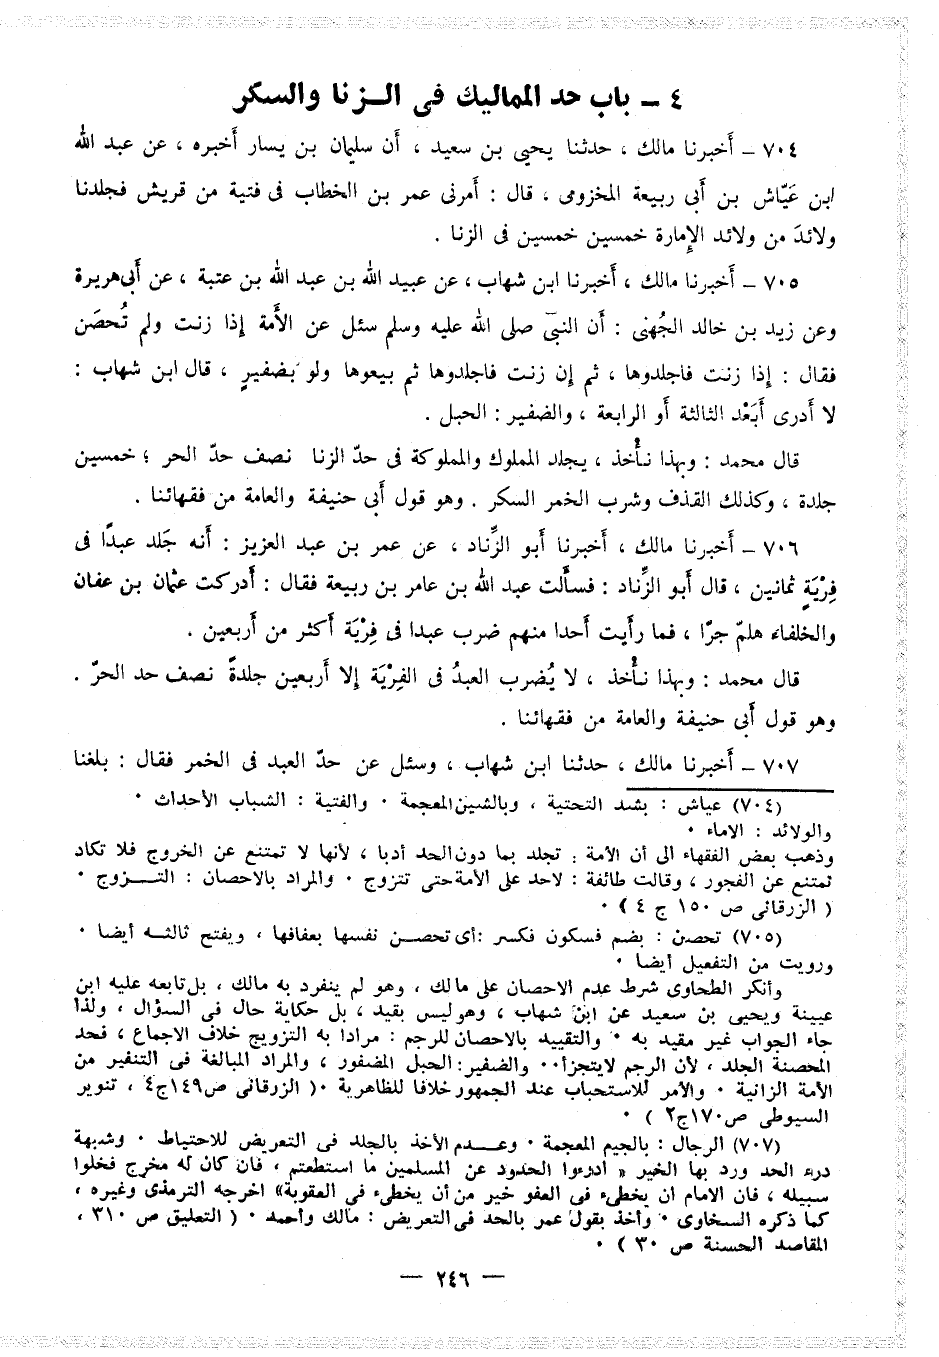 ٤ – باب حد المماليك فى الـزنا والسكر
٧٠٤ – أَخبرنا مالك ، حدثنا يحيى بن سعيد ، أَن سليمان بن يسار أَخبره ، عن عبد الله
ابن عَيّاش بن أَبى ربيعة المخزومى ، قال : أَمرنى عمر بن الخطاب فى فتية من قريش فجلدنا
ولائدَ من ولائد الإمارة خمسين خمسين فى الزنا .
٧٠٥ – أَخبرنا مالك ، أَخبرنا ابن شهاب ، عن عبيد الله بن عبد الله بن عتبة ، عن أَبى هريرة
وعن زيد بن خالد الجُهنى : أَن النبىّ صلى الله عليه وسلم سئل عن الأَمة إذا زنت ولم تُحصَن
فقال : إذا زنت فاجلدوها ، ثم إن زنت فاجلدوها ثم بيعوها ولو بضفيرٍ ، قال ابن شهاب :
لا أَدرى أَبَعْد الثالثة أَو الرابعة ، والضفير : الحبل .
قال محمد : وبهذا نـأْخذ ، يجلد المملوك والمملوكة فى حدّ الزنا نصف حدّ الحر ؛ خمسين
جلدة ، وكذلك القذف وشرب الخمر السكر . وهو قول أَبى حنيفة والعامة من فقهائنا .
٧٠٦ – أَخبرنا مالك ، أَخبرنا أَبو الزِّناد ، عن عمر بن عبد العزيز : أَنه جَلد عبدًا فى
فِرْيَةٍ ثمانين ، قال أَبو الزِّناد : فسأَلت عبد الله بن عامر بن ربيعة فقال : أَدركت عثمان بن عفان
والخلفاءَ هلمّ جرّا ، فما رأَيت أَحدا منهم ضرب عبدا فى فِرْيَة أَكثر من أَربعين .
قال محمد : وبهذا نـأْخذ ، لا يُضرب العبدُ فى الفِرْيَة إلا أَربعين جلدةً نصف حد الحرّ .
وهو قول أَبى حنيفة والعامة من فقهائنا .
٧٠٧ – أَخبرنا مالك ، حدثنا ابن شهاب ، وسئل عن حدّ العبد فى الخمر فقال : بلغنا
(٧٠٤) عياش : بشد التحتية ، وبالشين المعجمة ٠ والفتية : الشباب الأحداث ٠
والولائد : الاماء ٠
وذهب بعض الفقهاء الى أن الأمة : تجلد بما دون الحد أدبا ، لأنها لا تمتنع عن الخروج فلا تكاد
تمتنع عن الفجور ، وقالت طائفة : لاحد على الأمة حتى تتزوج ٠ والمراد بالاحصان : التــزوج ٠
( الزرقانى ص ١٥٠ ج ٤ ) ٠
(٧٠٥) تحصن : بضم فسكون فكسر : أى تحصن نفسها بعفافها ، ويفتح ثالثـه أيضا ٠
ورويت من التفعيل أيضا ٠
وأنكر الطحاوى شرط عدم الاحصان على مالك ، وهو لم ينفرد به مالك ، بل تابعه عليه ابن
عيينة ويحيى بن سعيد عن ابن شهاب ، وهو ليس بقيد ، بل حكاية حال فى السؤال ، ولذا
جاء الجواب غير مقيد به ٠ والتقييد بالاحصان للرجم : مرادا به التزويج خلاف الاجماع ، فحد
المحصنة الجلد ، لأن الرجم لا يتجزأ ٠٠ والضفير : الحبل المضفور ، والمراد المبالغة فى التنفير من
الأمة الزانية ٠ والأمر للاستحباب عند الجمهور خلافا للظاهرية ٠ ( الزرقانى ص١٤٩ج٤ ، تنوير
السيوطى ص١٧٠ج٢ ) ٠
(٧٠٧) الرجال : بالجيم المعجمة ٠ وعـدم الأخذ بالجلد فى التعريض للاحتياط ٠ وشبهة
درء الحد ورد بها الخبر « ادرءوا الحدود عن المسلمين ما استطعتم ، فان كان له مخرج فخلوا
سبيله ، فان الامام ان يخطىء فى العفو خير من أن يخطىء فى العقوبة» اخرجه الترمذى وغيره ،
كما ذكره السخاوى ٠ وأخذ بقول عمر بالحد فى التعريض : مالك وأحمد ٠ ( التعليق ص ٣١٠ ،
المقاصد الحسنة ص ٣٠ ) ٠
— ٢٤٦ —